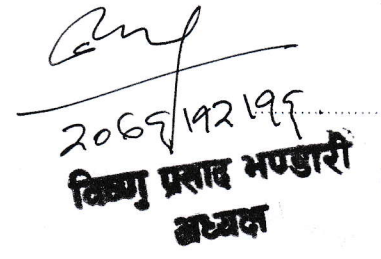 २०७६।१२।१६
विष्णु प्रसाद भण्डारी
अध्यक्ष